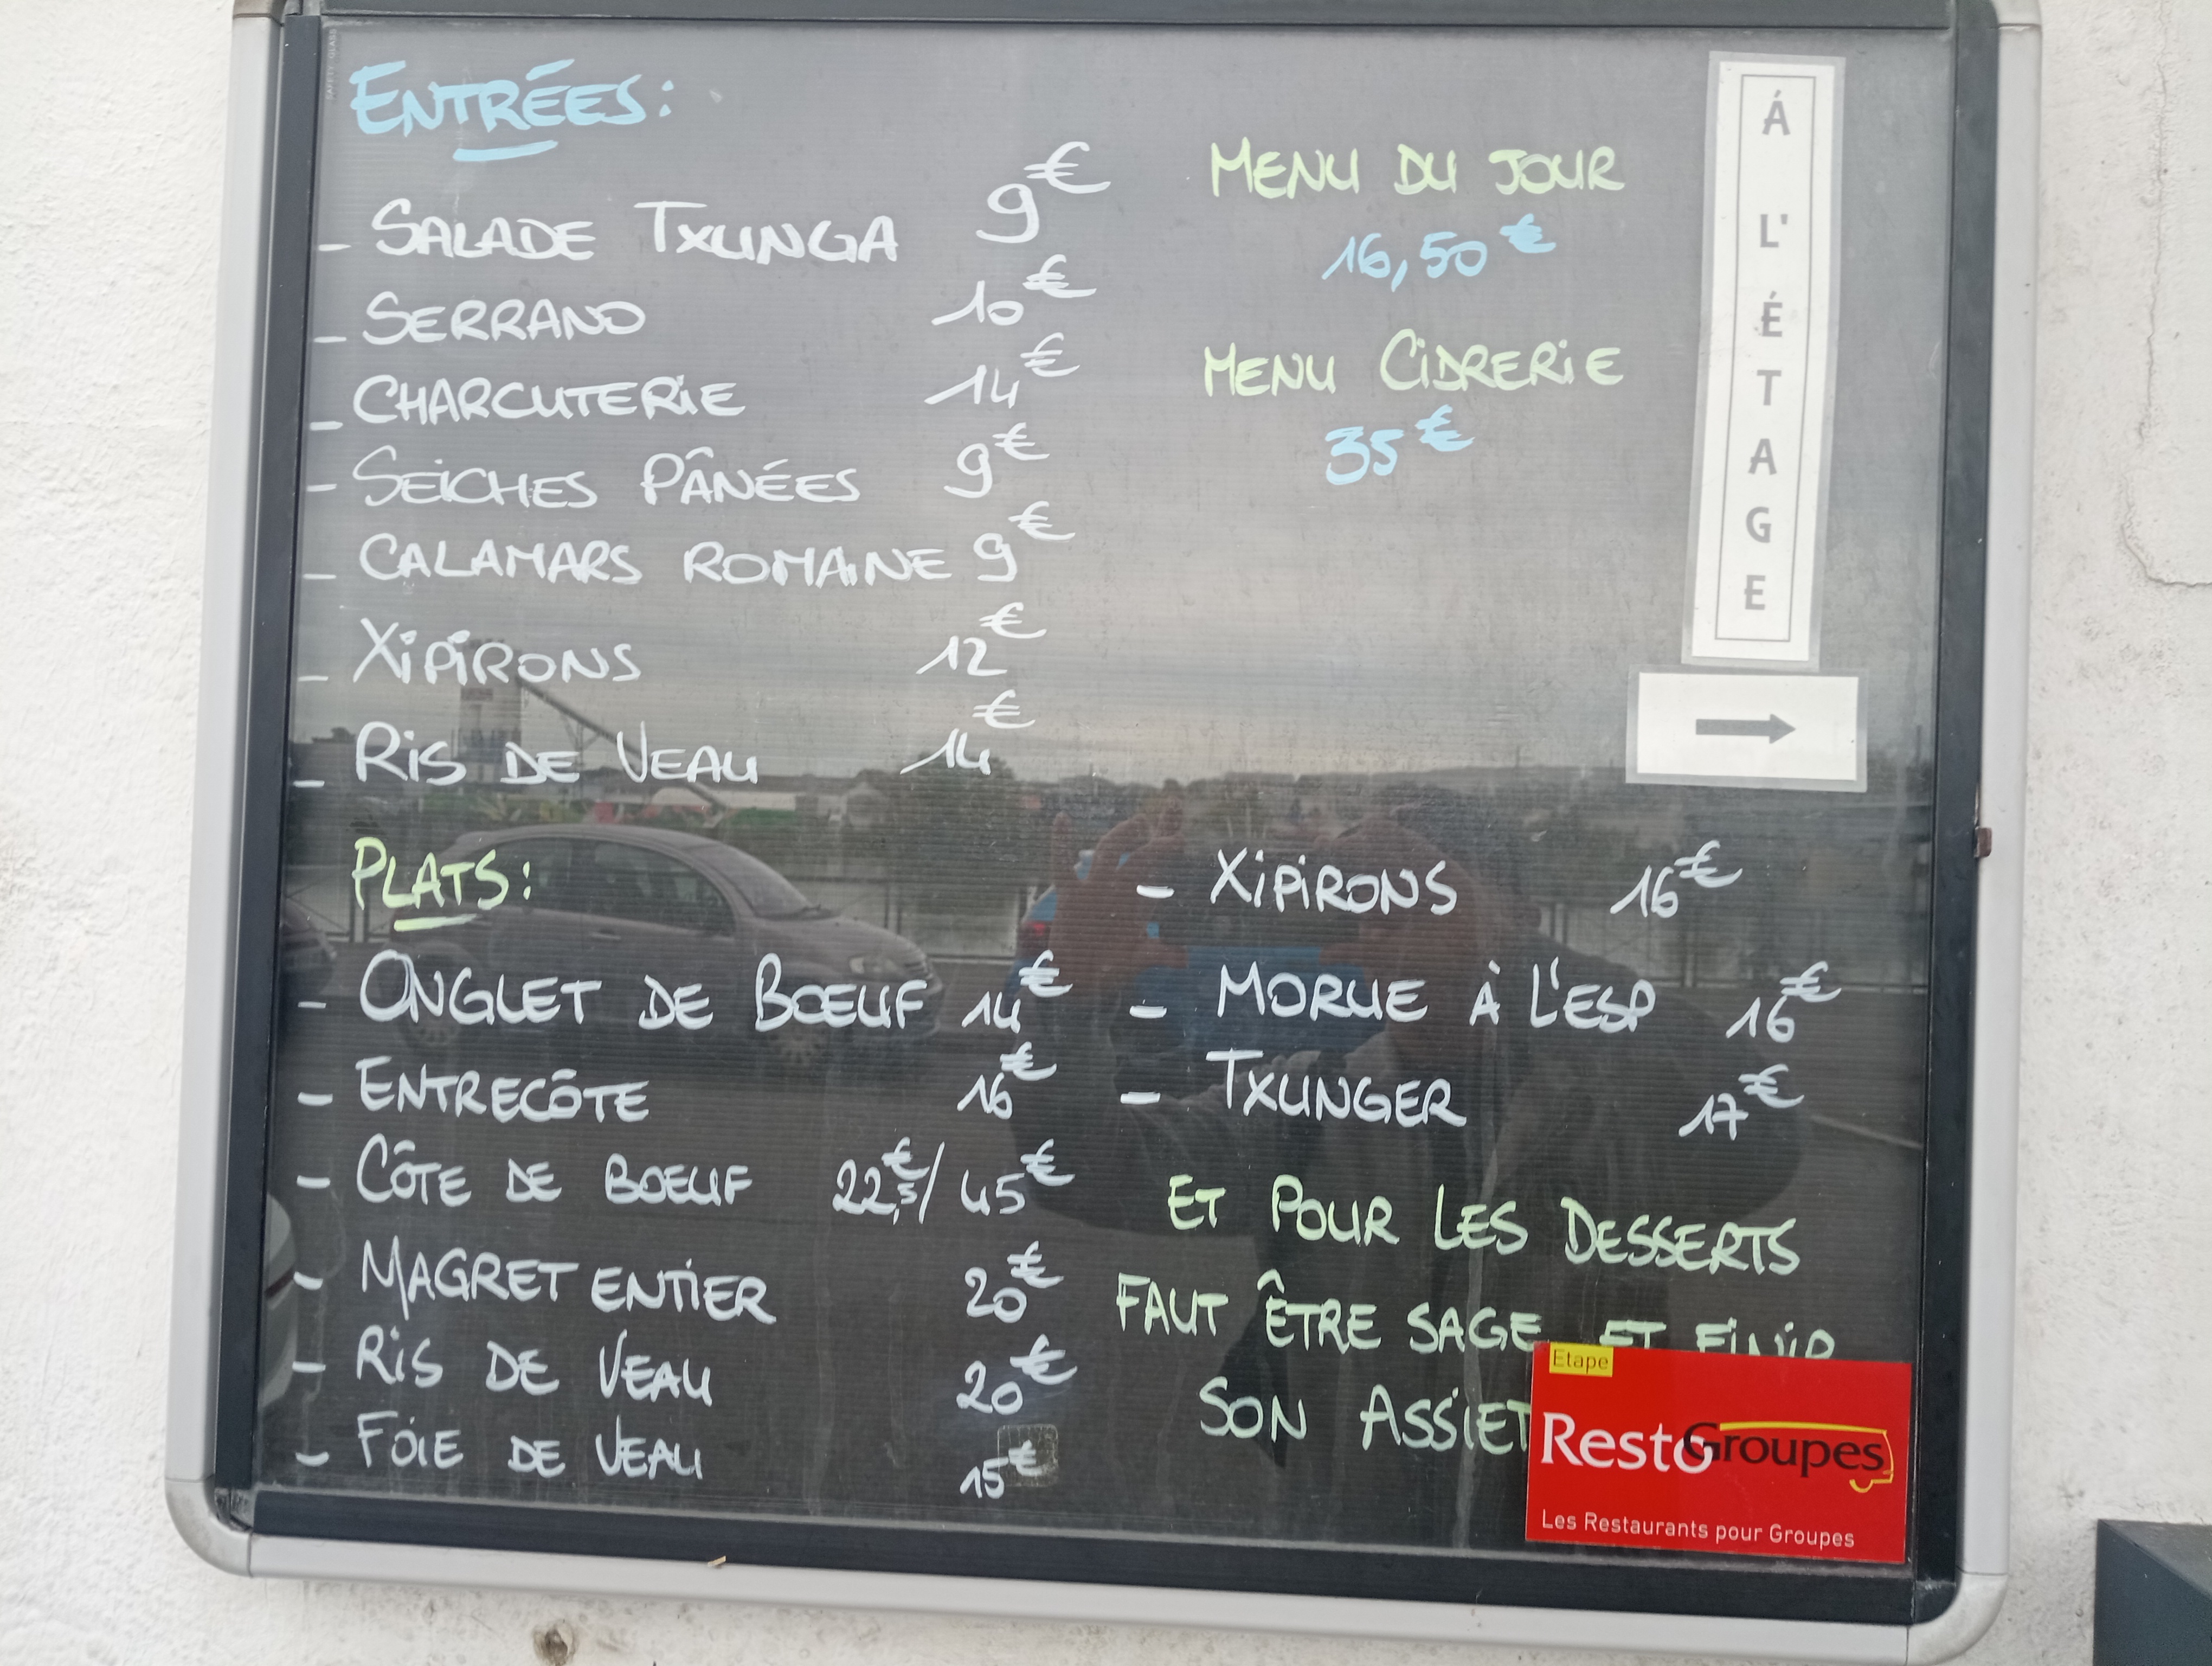 ENTRÉES:
- SALADE TXUNGA 9€
- SERRANO 10€
- CHARCUTERIE 14€
- SEICHES PÂNÉES 9€
- CALAMARS ROMAINE 9€
- XIPIRONS 12€
- RIS DE VEAU 14€
MENU DU JOUR
16,50€
MENU CIDRERIE
35€
Á L'ÉTAGE
→
PLATS:
- ONGLET DE BOEUF 14€
- ENTRECÔTE 16€
- CÔTE DE BOEUF 22€,5/45€
- MAGRET ENTIER 20€
- RIS DE VEAU 20€
- FOIE DE VEAU 15€
- XIPIRONS 16€
- MORUE À L'ESP 16€
- TXUNGER 17€
ET POUR LES DESSERTS
FAUT ÊTRE SAGE ET FINIR
SON ASSIET
Etape
RestoGroupes
Les Restaurants pour Groupes
SAFETY GLASS